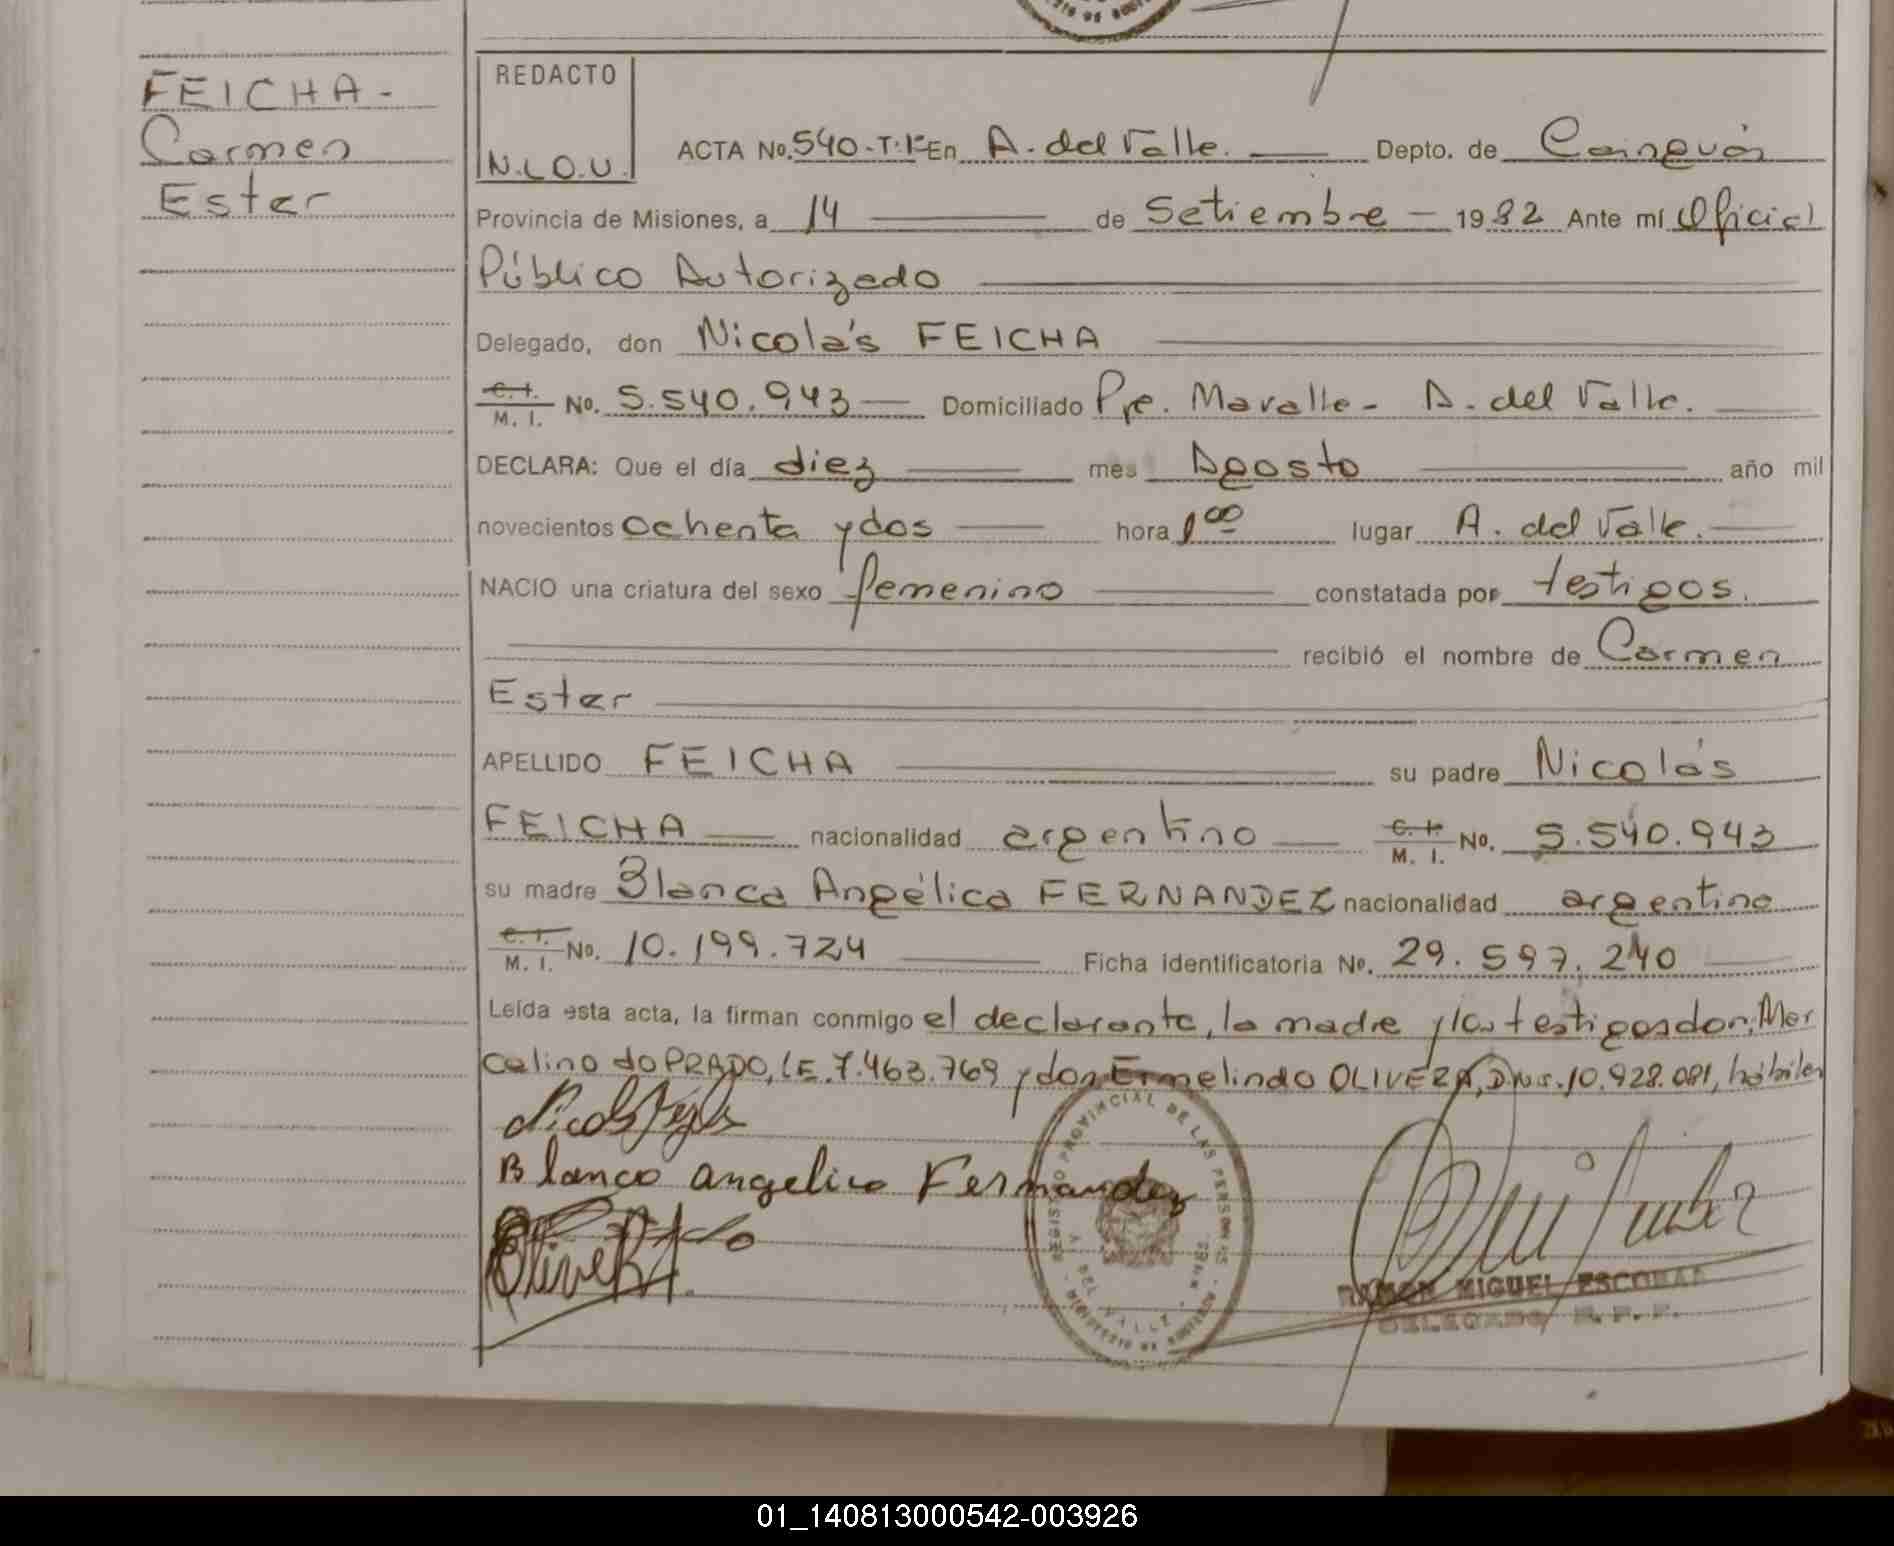 FEICHA-
Carmen
Ester
REDACTO
N.L.O.U.
ACTA No. 540-T.1º En A. del Valle. Depto. de Cainguás
Provincia de Misiones, a 14 de Setiembre - 1982 Ante mí Oficial
Público Autorizado
Delegado, don Nicolás FEICHA
C. I. M. I. No. 5.540.943 Domiciliado Pje. Mavalle - A. del Valle.
DECLARA: Que el día diez mes Agosto año mil
novecientos ochenta y dos hora 1 00 lugar A. del Valle.
NACIO una criatura del sexo femenino constatada por testigos.
recibió el nombre de Carmen
Ester
APELLIDO FEICHA su padre Nicolás
FEICHA nacionalidad argentino C. I. M. I. No. 5.540.943
su madre Blanca Angélica FERNANDEZ nacionalidad argentina
C. I. M. I. No. 10.199.724 Ficha identificatoria No. 29.597.240
Leída esta acta, la firman conmigo el declarante, la madre y los testigos don Mar
celino do PRADO, LE. 7.463.769 y don Ermelindo OLIVERA, DNI. 10.928.081, hábiles
Blanca angelica Fernandez
OliveRA.
REGISTRO PROVINCIAL DE LAS PERSONAS
A. DEL VALLE
RAMON MIGUEL ESCOBAR
DELEGADO R. P. P.
01_140813000542-003926